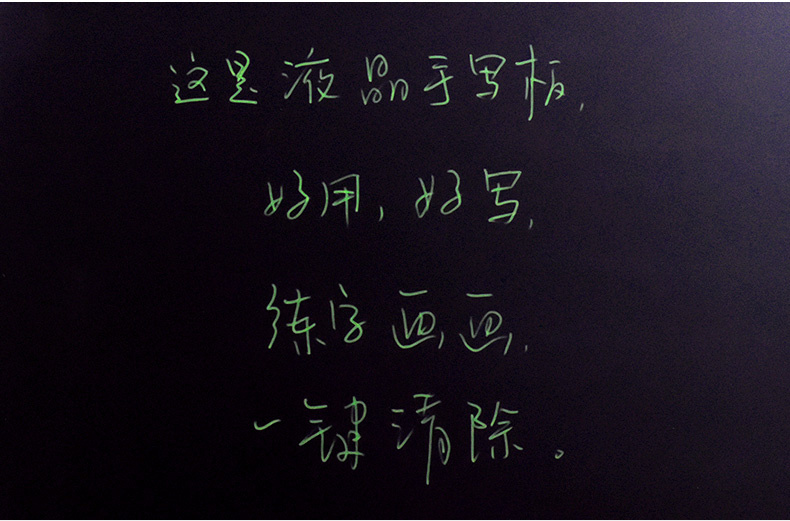 这是液晶手写板,
好用,好写,
练字画画,
一键清除。